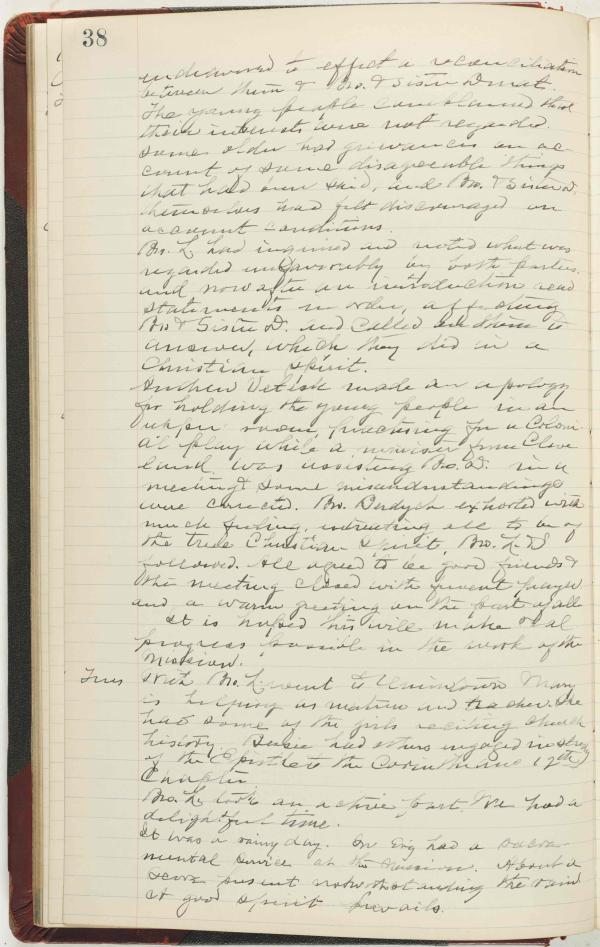 38
endeavored to effect a reconciliation
between them & Bro. & Sister D
The young people complained that
their interests were not regarded.
Some older had grievances on ac-
count of some disagreeable things
that had been said, and Bro. & Sister D.
themselves had felt discouraged on
account conditions.
Bro. L had inquired and noted what was
regarded unfavorably by both parties,
and now after an introduction read
statements in order, affecting
Bro & Sister D. and called on them to
answer, which they did in a
Christian spirit.
Andrew made an apology
for holding the young people in an
upper room, practising for a Coloni
al play while a minister from Cleve
land was assisting Bro. D. in a
meeting & some misunderstandings
were corrected. Bro. exhorted with
much feeling, entreating all to be of
the true Christian spirit, Bro. L.
followed. All agreed to be good friends &
the meeting closed with fervent prayer
and a warm greeting on the part of all.
It is hoped this will make real
progress possible in the work of the
Mission.
Tues With Bro. L. went to Uniontown Mary
is helping as matron and teacher. She
had some of the girls reciting church
history. had others engaged in study
of the Epistle to the Corinthians
Chapter
Bro. L. took an active part We had a
delightful time.
It was a rainy day. In Evg had a sacra-
mental service at the Mission. About a
score present notwithstanding the rain
A good spirit prevails.